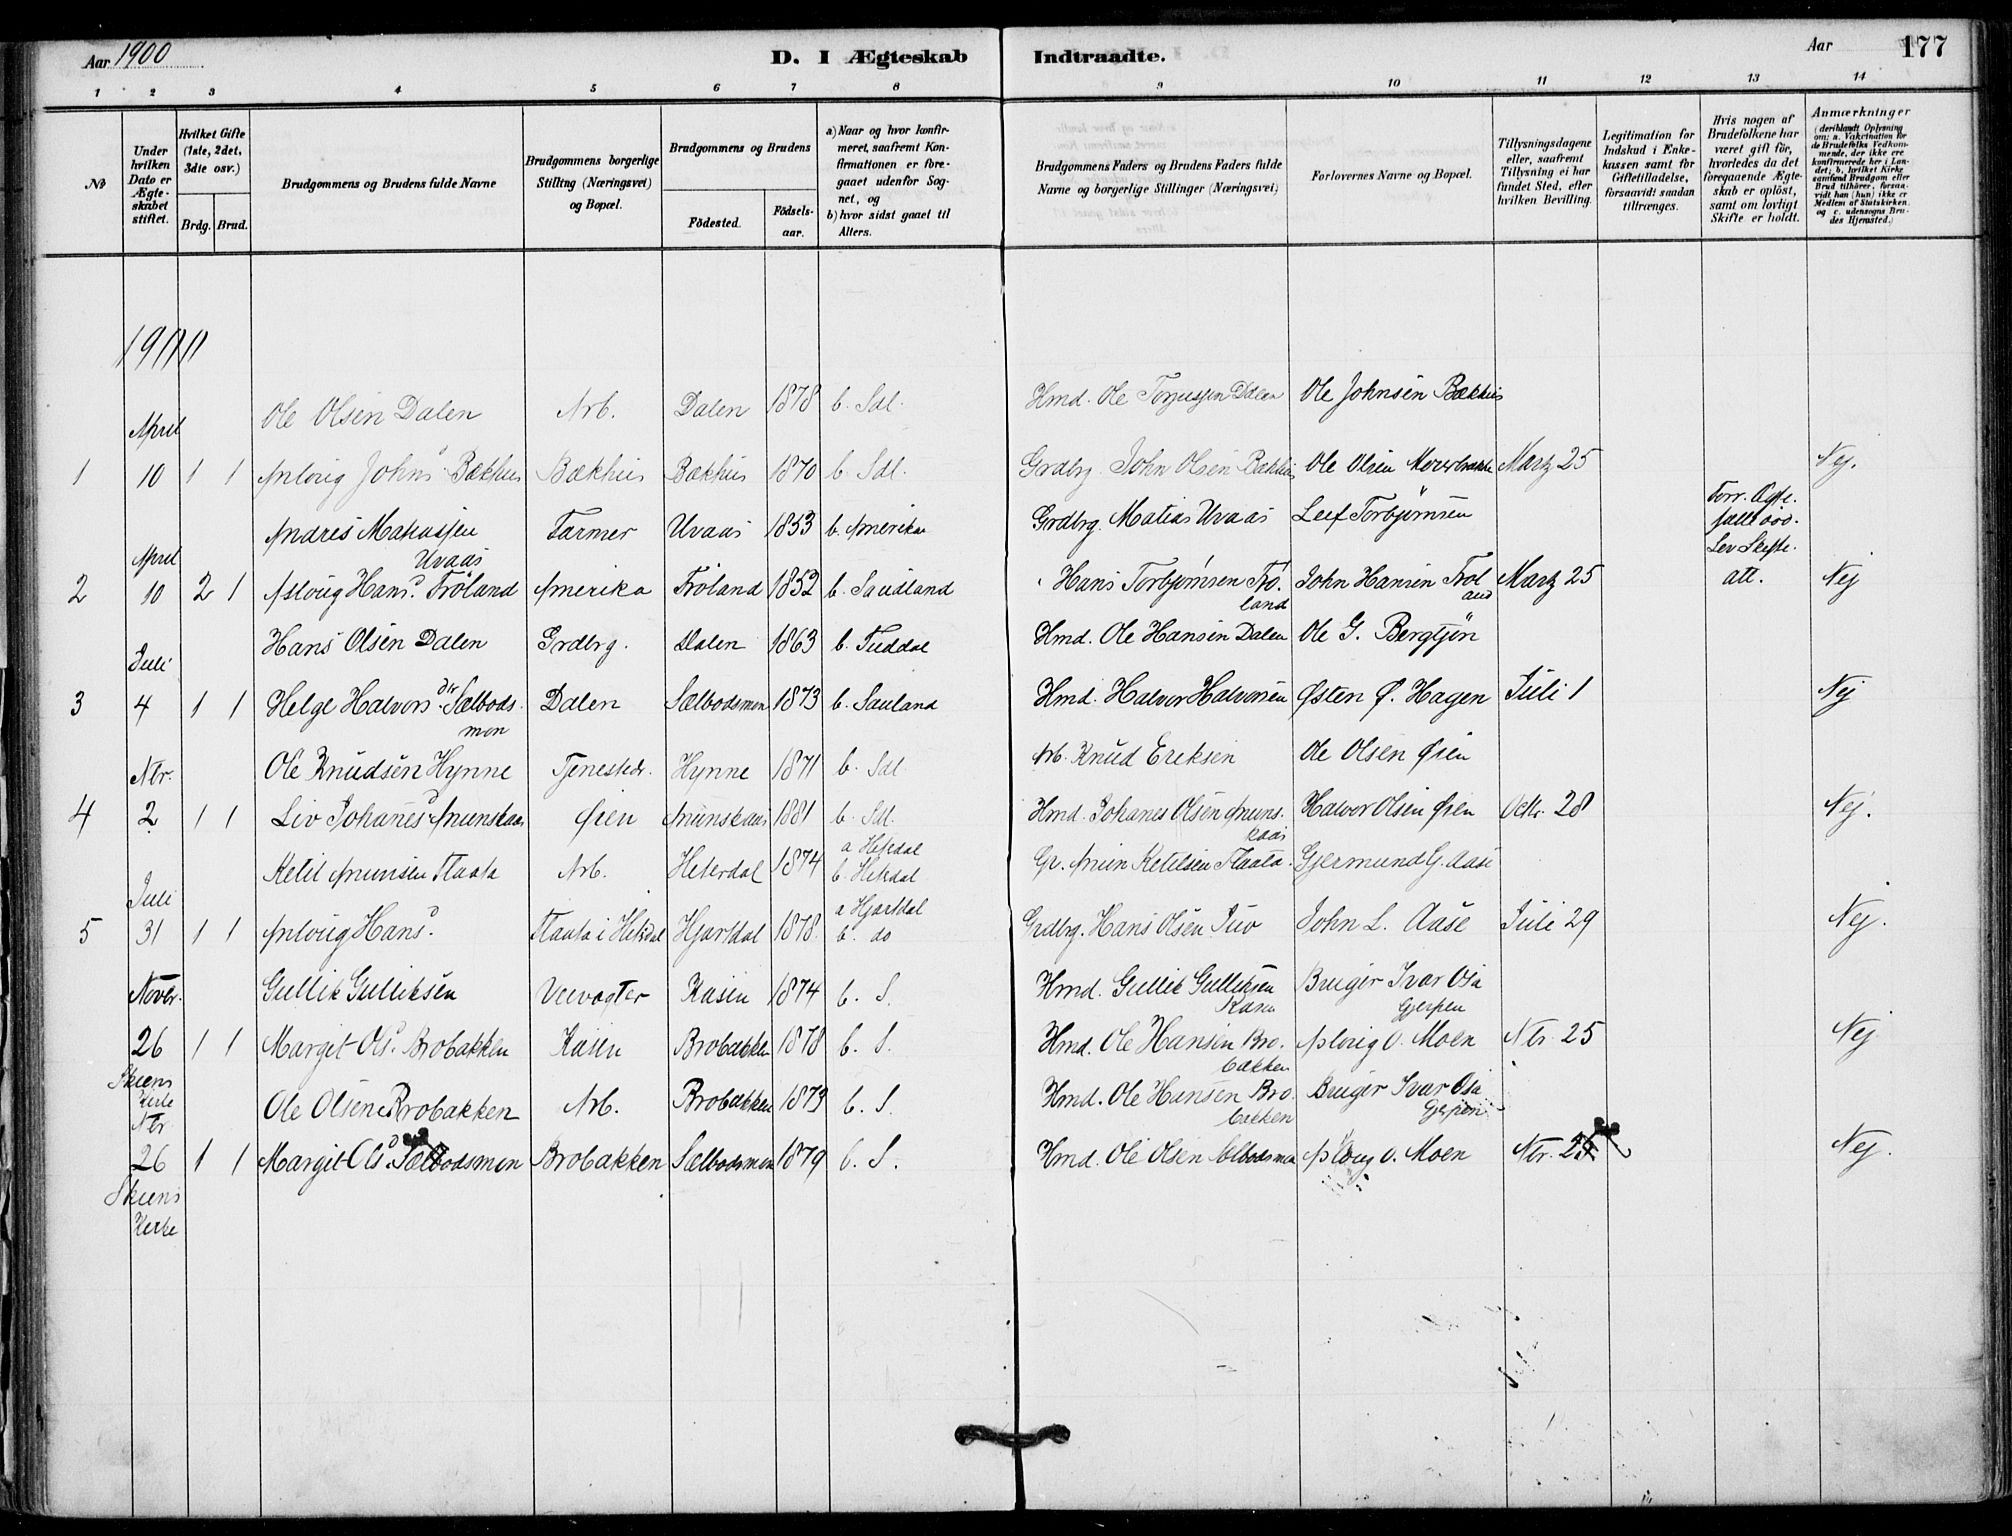 Aar 1900 D. I Ægteskab Indtraadte. Aar 177
1 2 3 4 5 6 7 8 9 10 11 12 13 14
№
Under hvilken Dato er Ægteskabet stiftet.
Hvilket Gifte (1ste, 2det, 3die osv.)
Brdg. Brud.
Brudgommens og Brudens fulde Navne
Brudgommens borgerlige Stilling (Næringsvei) og Bopæl.
Brudgommens og Brudens
Födested. Födselsaar.
a) Naar og hvor konfirmeret, saafremt Konfirmationen er foregaaet udenfor Sognet, og
b) hvor sidst gaaet til Alters.
Brudgommens Faders og Brudens Faders fulde Navne og borgerlige Stillinger (Næringsvei)
Forlovernes Navne og Bopæl.
Tillysningsdagene eller, saafremt Tillysning ei har fundet Sted, efter hvilken Bevilling.
Legitimation for Indskud i Enkekassen samt for Giftetilladelse, forsaavidt saadan tiltrænges.
Hvis nogen af Brudefolkene har været gift för, hvorledes da det foregaaende Ægteskab er oplöst, samt om lovligt Skifte er holdt.
Anmærkninger
(deriblandt Oplysning om: a. Vakcination for de Brudefolks Vedkommende, der ikke ere konfirmerede her i Landet; b. hvilket Kirkesamfund Brudgom eller Brud tilhörer, forsaavidt han (hun) ikke er Medlem af Statskirken, og c. udensogns Brudes Hjemsted.)
1900
April Ole Olsen Dalen Arb. Dalen 1878 b. Sdl. Hmd. Ole Torjussen Dalen Ole Johnsen Bækhus
1 10 1 1 Asloug Johnsd Bækhus Bækhus Bækhus 1870 b. Sdl. Grdbrg. John Olsen Bækhus Ole Olsen Martz 25 Nej.
April Andres Matiassen Uvaas Farmer Uvaas 1853 b. Amerika Grdbrg. Matias Uvaas Leif Torbjørnsen Forr. Ægte.
2 10 2 1 Asloug Hansd. Tröland Amerika Tröland 1852 b. Saudland Hans Torbjørnsen Tröland John Hansen Tröland Martz 25 Lev Skifte. att. Nej
Juli Hans Olsen Dalen Grdbrg. Dalen 1863 b. Tuddal Hmd. Ole Hansen Dalen Ole G. Bergtjön
3 4 1 1 Helge Halvorsdtr. Sælbodsmon Dalen Sælbodsmon 1873 b. Sauland Hmd. Halvor Halvorsen Østen Ø. Hagen Juli 1 Nej
Nbr. Ole Knudsen Hynne Tjenestedr. Hynne 1871 b. Sdl Arb. Knud Eriksen Ole Olsen Øien
4 2 1 1 Liv Johanesd Amunskaas Øien Amunskaas 1881 b. Sdl. Hmd. Johanes Olsen Amunskaas Halvor Olsen Øien Octr. 28 Nej.
Juli Ketil Amunsen Flaata Arb. Heterdal 1874 a Hetdal b. Hetdal Gr. Amun Ketilsen Flaata. Gjermund G. Aase
5 31 1 1 Asloug Hansd. Flaata i Hetdal Hjartdal 1878 a Hjartdal b. do Grdbrg. Hans Olsen Juv John L. Aase Juli 29 Nej.
Novbr. Gullik Gulliksen Veivogter Kasin 1874 b. S. Hmd. Gullik Gulliksen Kasin Bruger Ivar Osa Gjerpen
26 1 1 Margit Olsd. Brobakken Kasin Brobakken 1878 b. S. Hmd. Ole Hansen Brobakken Asloug O. Moen Nbr. 25 Nej
Skiens Kirke
Nbr Ole Olsen Brobakken Arb. Brobakken 1873 b. S. Hmd. Ole Hansen Brobakken Bruger Ivar Osa Gjerpen
26 1 1 Margit Olsd. Sælbodsmon Brobakken Sælbodsmon 1879 b. S. Hmd. Ole Olsen Sælbodsmon Asloug O. Moen Nbr. 25 Nej.
Skiens Kirke